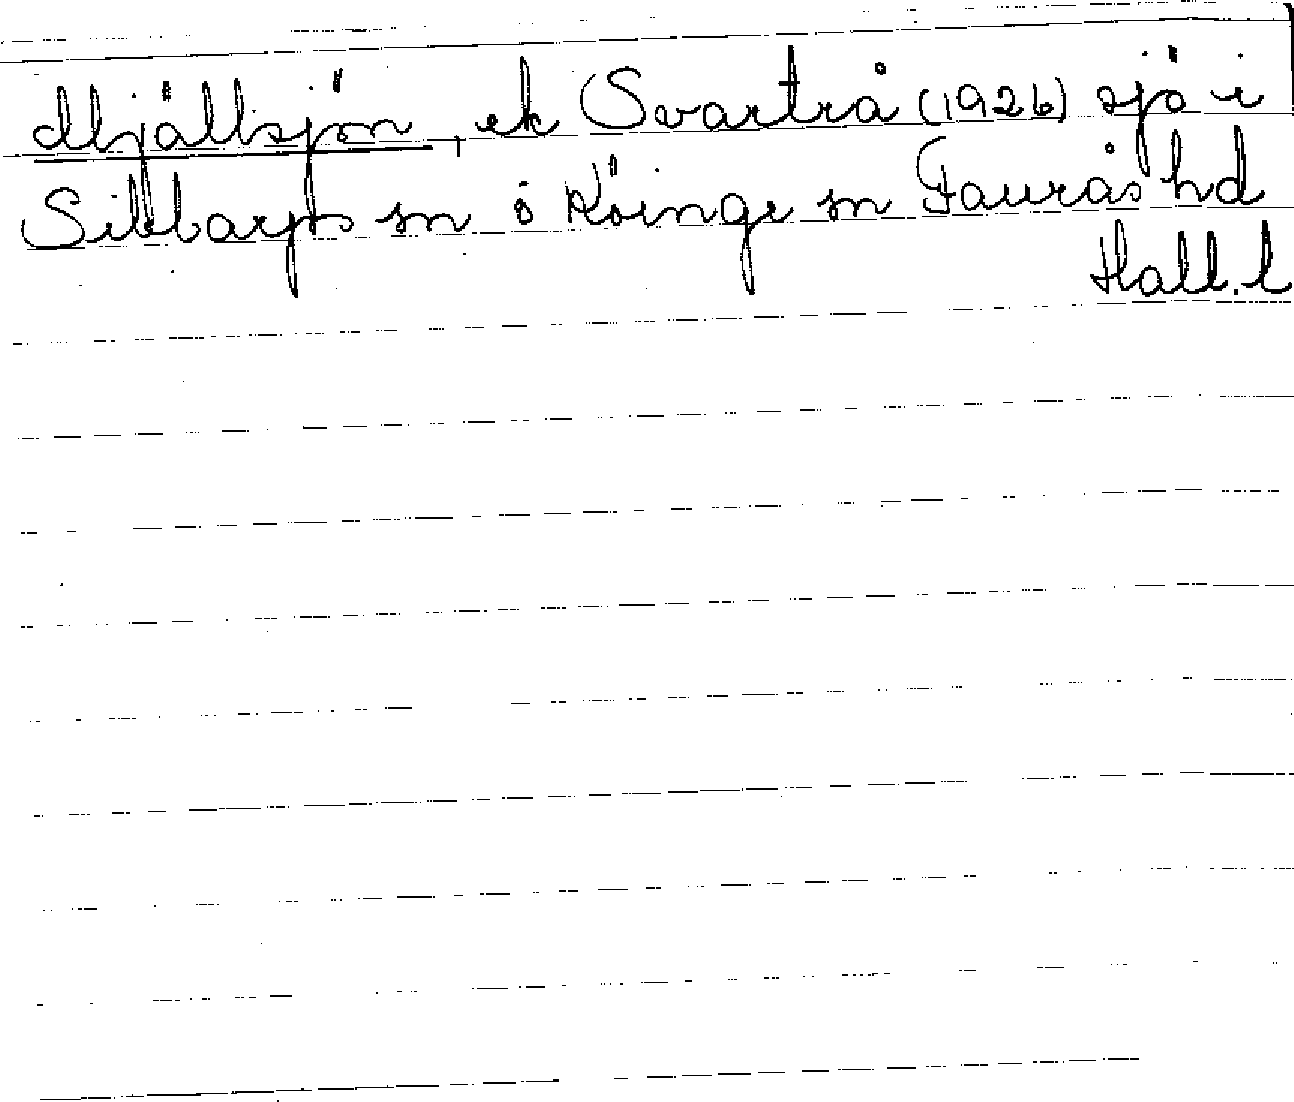 Mjällsjön, ek Svartrå (1926) sjö i
Sibbarps sn o Köinge sn Faurås hd
Hall. l